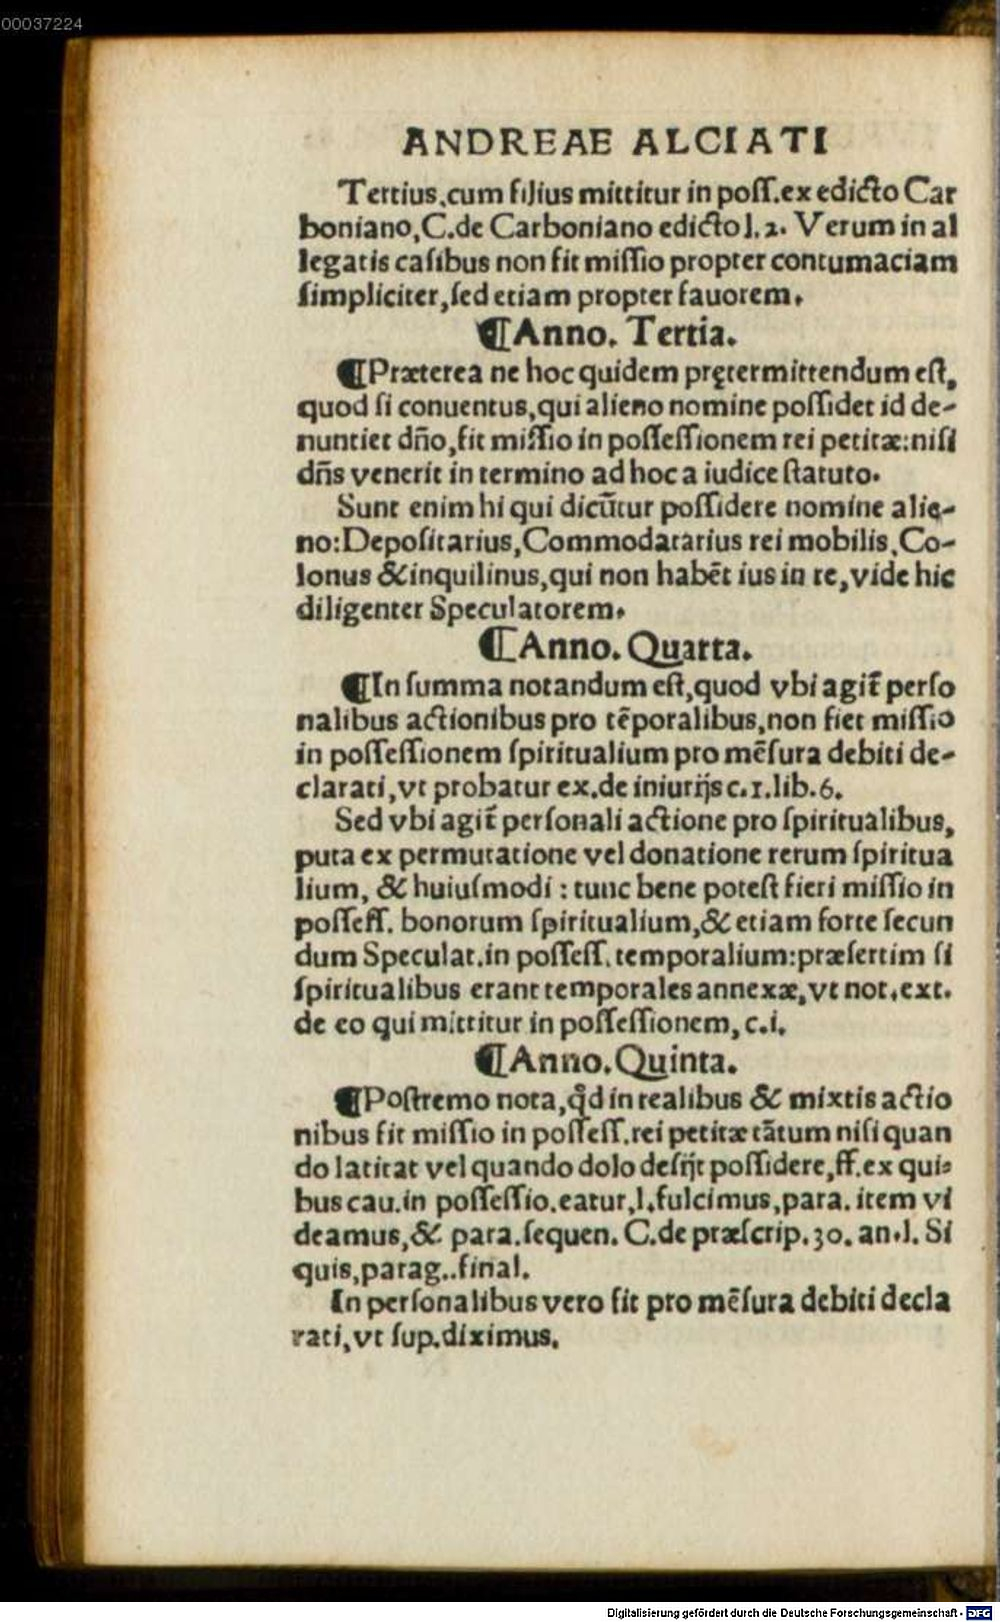 00037224
ANDREAE ALCIATI
Tertius, cum filius mittitur in poſſ. ex edicto Car
boniano, C. de Carboniano edicto l. 2. Verum in al
legatis caſibus non fit miſſio propter contumaciam
ſimpliciter, ſed etiam propter fauorem.
¶Anno. Tertia.
¶Præterea ne hoc quidem prętermittendum eſt,
quod ſi conuentus, qui alieno nomine poſſidet id de-
nuntiet dño, fit miſſio in poſſeſſionem rei petitæ: niſi
dñs venerit in termino ad hoc a iudice ſtatuto.
Sunt enim hi qui dicūtur poſſidere nomine alie-
no: Depoſitarius, Commodatarius rei mobilis, Co-
lonus & inquilinus, qui non habēt ius in re, vide hic
diligenter Speculatorem.
¶Anno. Quarta.
¶In ſumma notandum eſt, quod vbi agit̃ perſo
nalibus actionibus pro tēporalibus, non fiet miſſio
in poſſeſſionem ſpiritualium pro mēſura debiti de-
clarati, vt probatur ex. de iniurijs c. 1. lib. 6.
Sed vbi agit̃ perſonali actione pro ſpiritualibus,
puta ex permutatione vel donatione rerum ſpiritua
lium, & huiuſmodi : tunc bene poteſt fieri miſſio in
poſſeſſ. bonorum ſpiritualium, & etiam forte ſecun
dum Speculat. in poſſeſſ. temporalium: præſertim ſi
ſpiritualibus erant temporales annexæ, vt not. ext.
de eo qui mittitur in poſſeſſionem, c. i.
¶Anno. Quinta.
¶Poſtremo nota, qd̓ in realibus & mixtis actio
nibus fit miſſio in poſſeſſ. rei petitæ tātum niſi quan
do latitat vel quando dolo deſijt poſſidere, ff. ex qui-
bus cau. in poſſeſſio. eatur, l. fulcimus, para. item vi
deamus, & para. ſequen. C. de præſcrip. 30. an. l. Si
quis, parag.. final.
In perſonalibus vero fit pro mēſura debiti decla
rati, vt ſup. diximus.
Digitalisierung gefördert durch die Deutsche Forschungsgemeinschaft - DFG